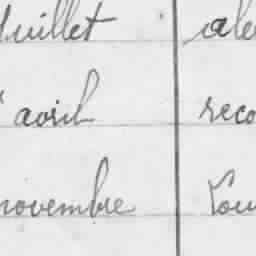 Juillet ale
avril reco
novembre Lou